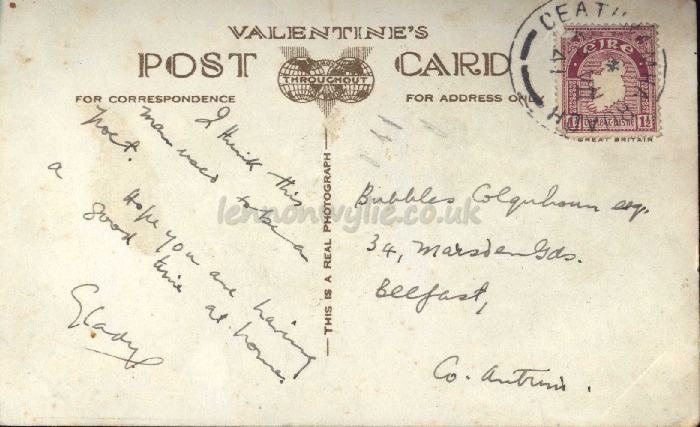 VALENTINE'S
POST CARD
THROUGHOUT
FOR CORRESPONDENCE
FOR ADDRESS ONLY
GREAT BRITAIN
THIS IS A REAL PHOTOGRAPH
éIRe
1½
I think this
man used to be a
poet.
Hope you are having
a good time at home.
Gladys
Bubbles Colquhoun esq.
34, Marsden Gds.
Belfast,
Co. Antrim.
lennonwylie.co.uk